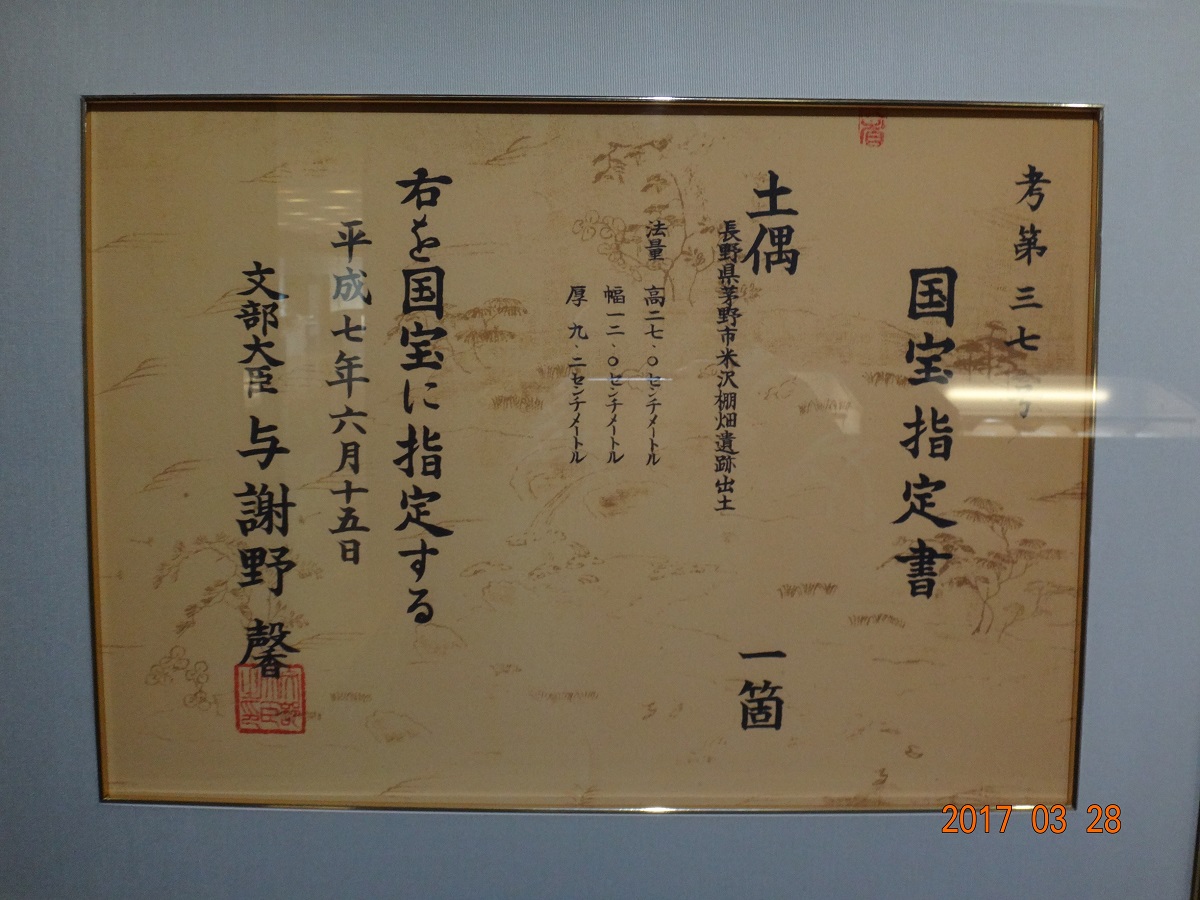 考第三七号
国宝指定書
土偶 一箇
長野県茅野市米沢棚畑遺跡出土
法量 高二七・〇センチメートル
幅一二・〇センチメートル
厚 九・二センチメートル
右を国宝に指定する
平成七年六月十五日
文部大臣 与謝野 馨
2017 03 28